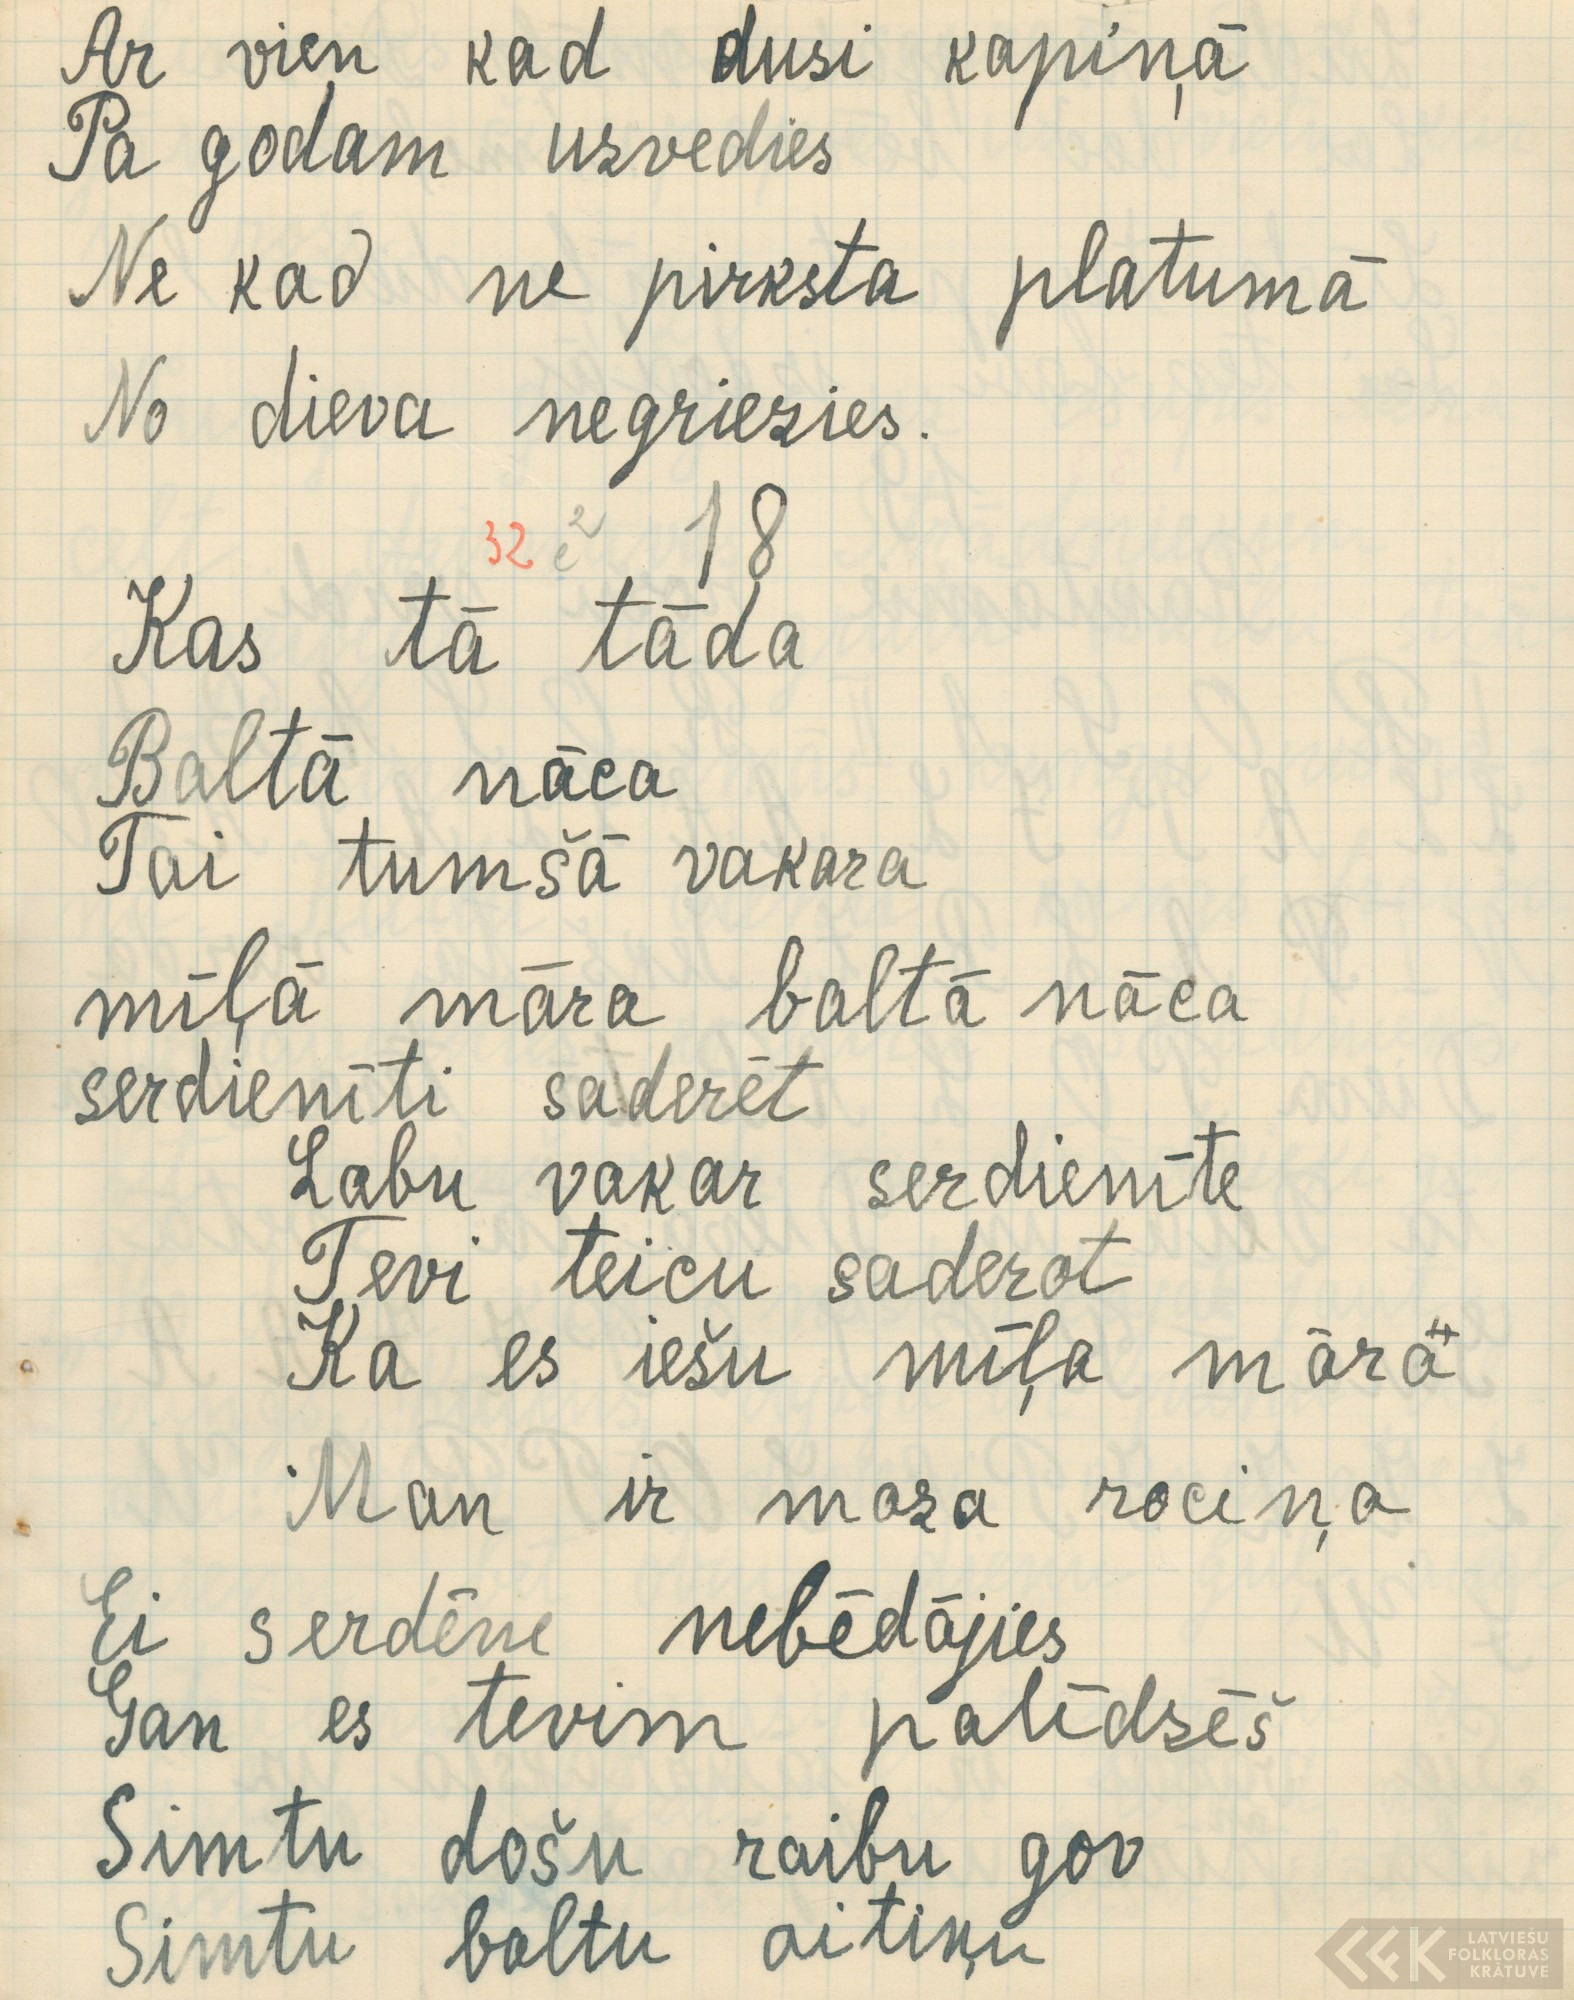 Ar vien kad dusi kapiņā
Pa godam uzvedies
Ne kad ne pirksta platumā
No dieva negriezies.
32 e² 18
Kas tā tāda
Baltā nāca
Tai tumšā vakara
mīļā māra baltā nāca
serdienīti saderēt
Labu vakar serdienīte
Tevi teicu saderot
Ka es iešu mīļa mārā
Man ir maza rociņa
Ei serdēne nebēdājies
Gan es tevim palīdzēš
Simtu došu raibu gov
Simtu baltu aitiņu
LATVIEŠU
FOLKLORAS
KRĀTUVE